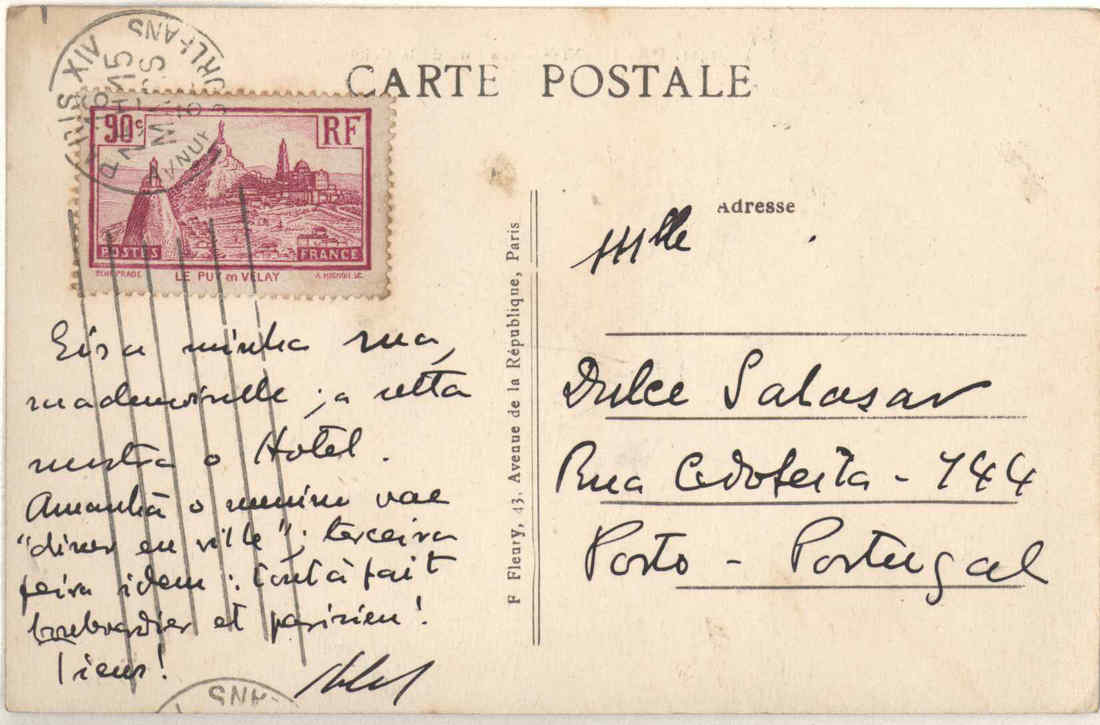 CARTE POSTALE
90c RF
POSTES FRANCE
LE PUY en VELAY
Eis a minha rua,
mademoiselle ; a setta
mostra o Hotel.
Amanhã o menino vae
"diner en ville"; terceira
feira idem : tout à fait
boulevardier et parisien!
Tiens!
F Fleury, 43, Avenue de la République, Paris
Adresse
Mlle
Dulce Salasar
Rua Cedofeita - 744
Porto - Portugal